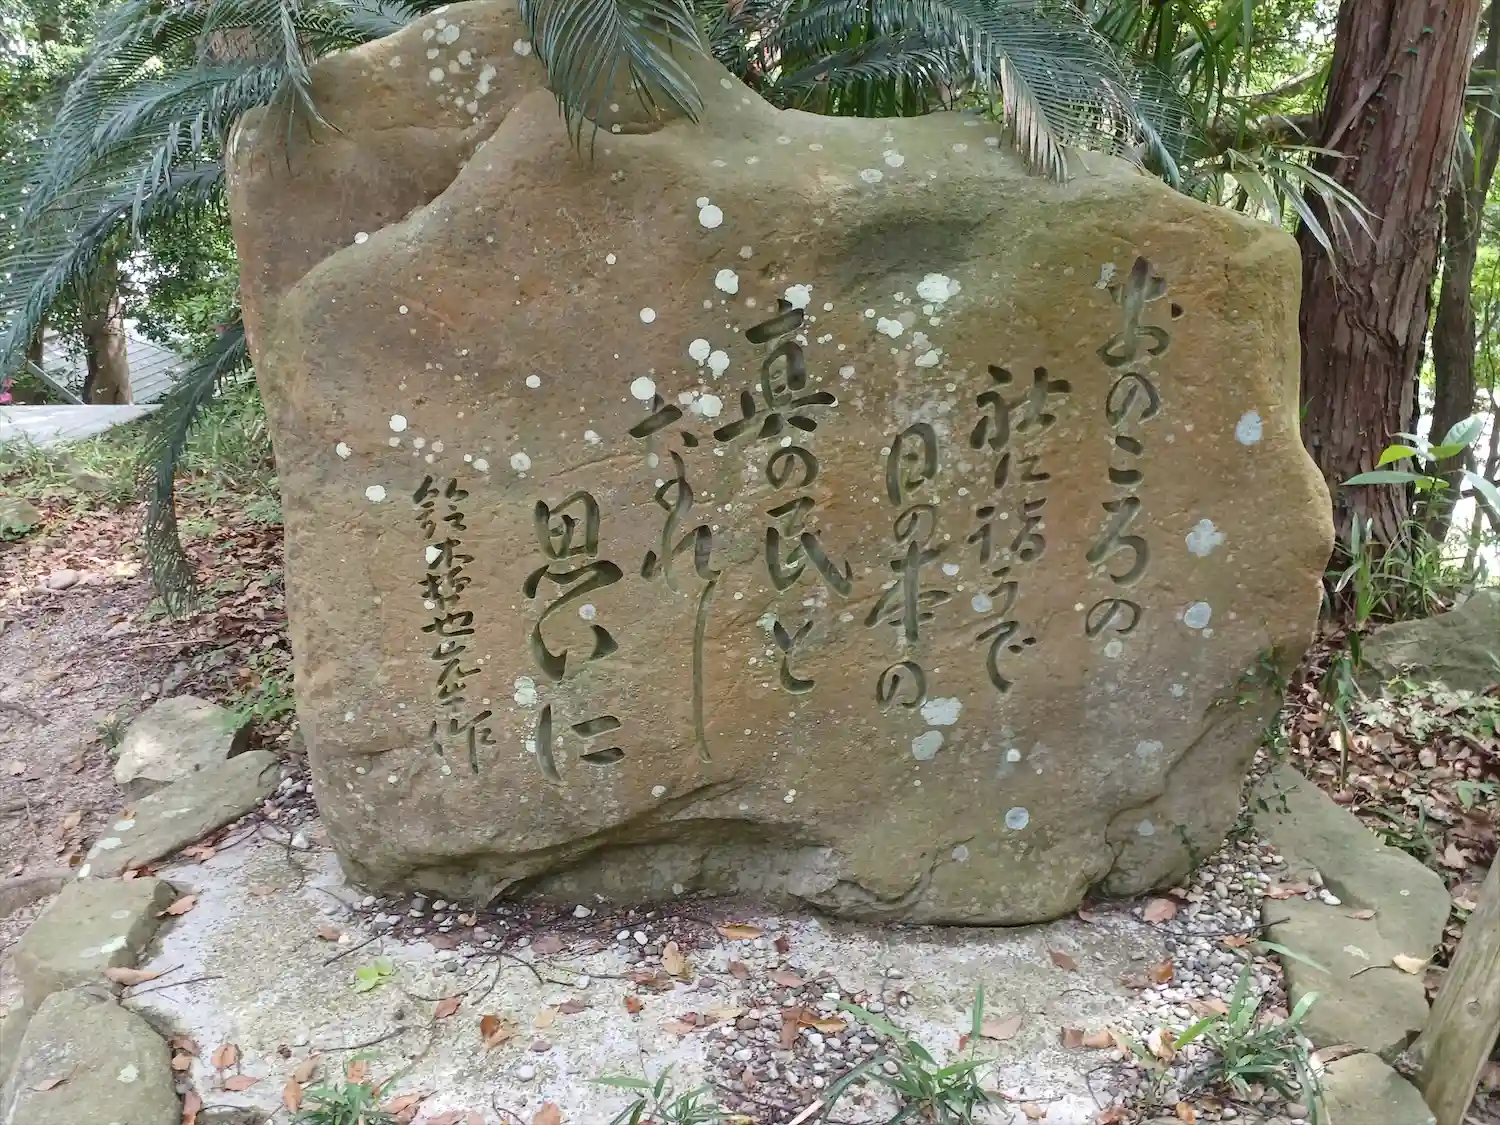 おのころの
社に詣うで
日の本の
真の民と
なれし
思いに
鈴木哲也先生作